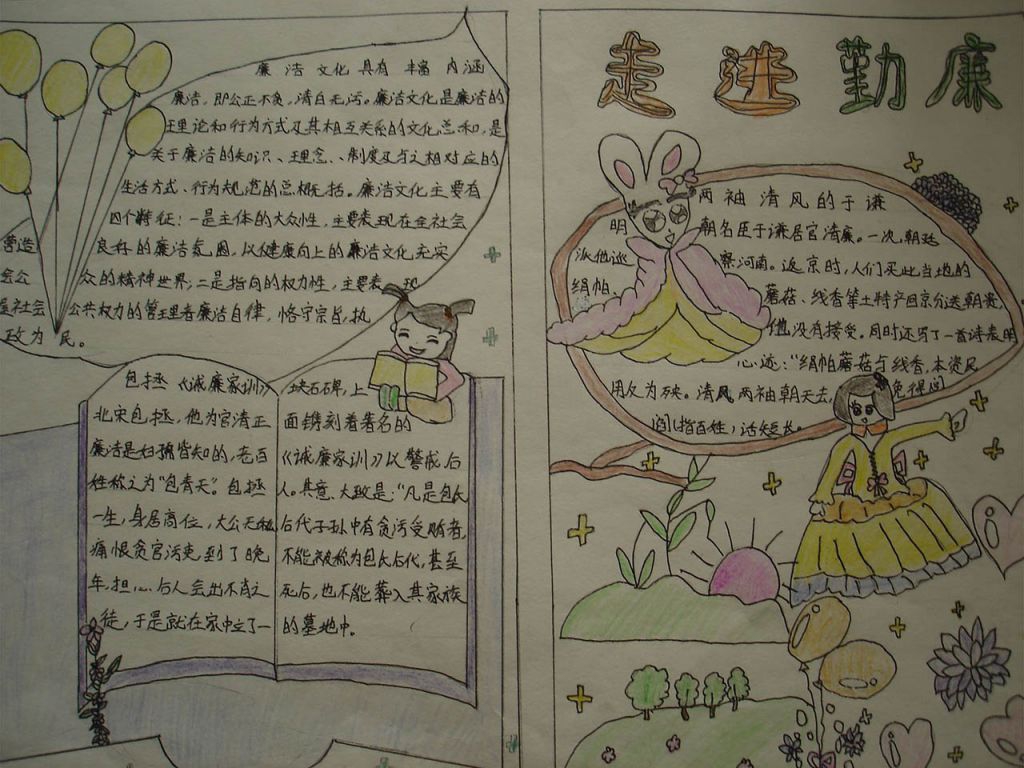 廉洁文化具有丰富内涵
廉洁，即公正不贪，清白无污。廉洁文化是廉洁的
理论和行为方式及其相互关系的文化总和，是
关于廉洁的知识、理念、制度及与之相对应的
生活方式、行为规范的总概括。廉洁文化主要有
四个特征：一是主体的大众性，主要表现在全社会
营造良好的廉洁氛围，以健康向上的廉洁文化充实
会公众的精神世界；二是指向的权力性，主要表现
社会公共权力的管理者廉洁自律，恪守宗旨，执
政为民。
包拯《诫廉家训》
北宋包拯，他为官清正
廉洁是妇孺皆知的，老百
姓称之为“包青天”。包拯
一生，身居高位，大公无私
痛恨贪官污吏，到了晚
年，担心后人会出不肖之
徒，于是就在家中立了一
块石碑，上
面镌刻着著名的
《诫廉家训》以警戒后
人。其意大致是：“凡是包氏
后代子孙中有贪污受贿者，
不能被称为包氏后代，甚至
死后，也不能葬入其家族
的墓地中。
走进勤廉
两袖清风的于谦
明朝名臣于谦居官清廉。一次，朝廷
派他巡察河南。返京时，人们买些当地的
绢帕、蘑菇、线香等土特产回京分送朝贵，
他没有接受。同时还写了一首诗表明
心迹：“绢帕蘑菇与线香，本资民
用反为殃。清风两袖朝天去，免得闾
阎指百姓，话短长。